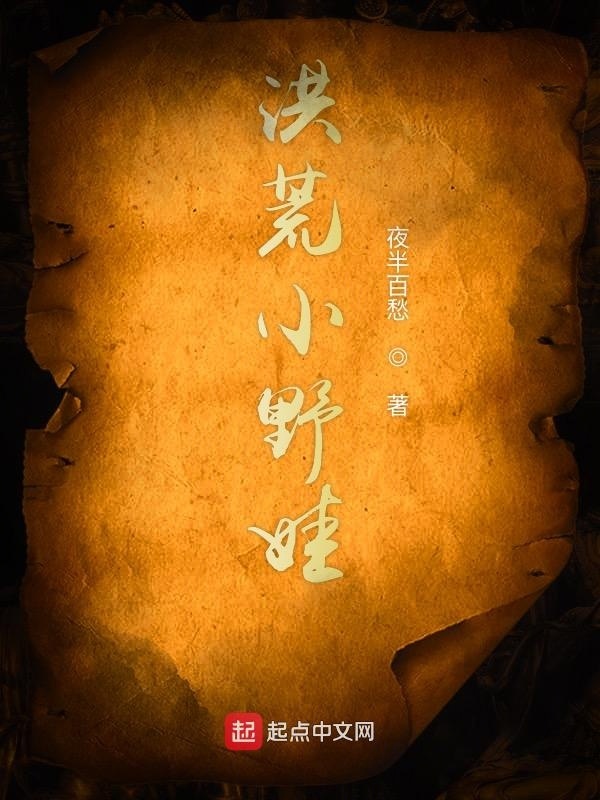 洪荒小野娃
夜半百愁 ◎ 著
起 起点中文网